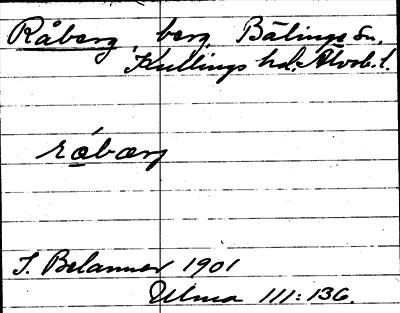 Råberg, berg, Bälinge sn.
Kullings hd. Älvsb. l.
råbærj
J. Belanner 1901
Ulma 111:136.